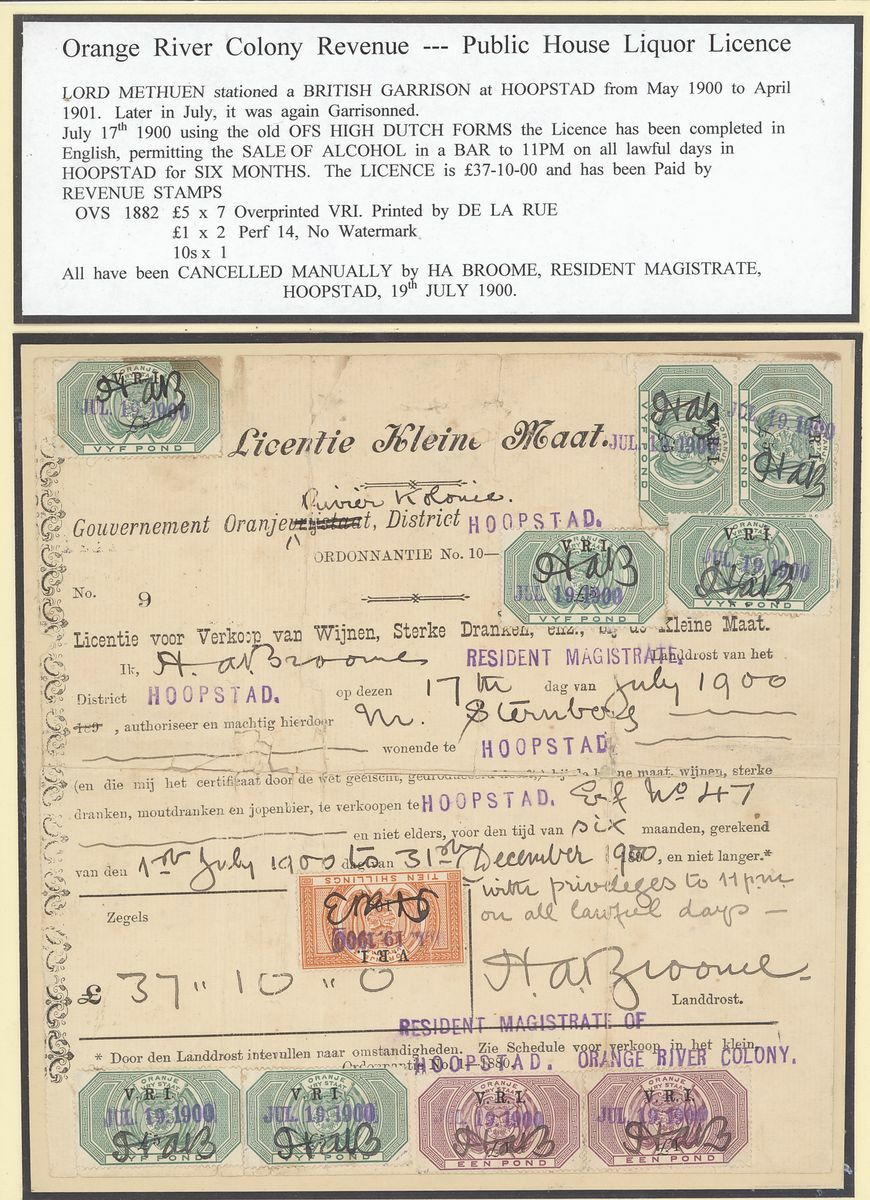 Orange River Colony Revenue --- Public House Liquor Licence
LORD METHUEN stationed a BRITISH GARRISON at HOOPSTAD from May 1900 to April
1901. Later in July, it was again Garrisonned.
July 17th 1900 using the old OFS HIGH DUTCH FORMS the Licence has been completed in
English, permitting the SALE OF ALCOHOL in a BAR to 11PM on all lawful days in
HOOPSTAD for SIX MONTHS. The LICENCE is £37-10-00 and has been Paid by
REVENUE STAMPS
OVS 1882 £5 x 7 Overprinted VRI. Printed by DE LA RUE
£1 x 2 Perf 14, No Watermark
10s x 1
All have been CANCELLED MANUALLY by HA BROOME, RESIDENT MAGISTRATE,
HOOPSTAD, 19th JULY 1900.
ORANJE
V.R.I.
HAB
JUL 19.1900
£5
VYF POND
V.R.I.
HAB
JUL 19.1900
VYF POND
ORANJE
V.R.I.
HAB
JUL 19.1900
£5
VYF POND
Licentie Kleine Maat.
Rivier Kolonie.
Gouvernement Oranjevrystaat, District HOOPSTAD.
ORDONNANTIE No. 10—
ORANJE
VRY STAAT
V.R.I.
HAB
JUL 19.1900
VYF POND
ORANJE
VRY STAAT
V.R.I.
JUL 19.1900
HAB
VYF POND
No. 9
Licentie voor Verkoop van Wijnen, Sterke Dranken, enz., bij de Kleine Maat.
Ik, H. A. Broome RESIDENT MAGISTRATE. Landdrost van het
District HOOPSTAD. op dezen 17th dag van July 1900
189 , authoriseer en machtig hierdoor M. Sternberg
wonende te HOOPSTAD
(en die mij het certificaat door de wet geëischt, bij de kleine maat, wijnen, sterke
dranken, moutdranken en jopenbier, te verkoopen te HOOPSTAD. Erf No 47
en niet elders, voor den tijd van six maanden, gerekend
van den 1st July 1900 dag van to 31st December 1900, en niet langer.*
with privileges to 11 pm
on all lawful days —
TIEN SHILLINGS
HAB
JUL 19.1900
V.R.I.
Zegels
£ 37 " 10 " 0
H. A. Broome
Landdrost.
RESIDENT MAGISTRATE OF
* Door den Landdrost intevullen naar omstandigheden. Zie Schedule voor verkoop in het klein,
HOOPSTAD. ORANGE RIVER COLONY.
1880.
ORANJE
VRY STAAT
V.R.I.
JUL 19.1900
HAB
VYF POND
ORANJE
VRY STAAT
V.R.I.
JUL 19.1900
HAB
VYF POND
ORANJE
VRY STAAT
V.R.I.
JUL 19.1900
HAB
EEN POND
ORANJE
VRY STAAT
V.R.I.
JUL 19.1900
HAB
EEN POND